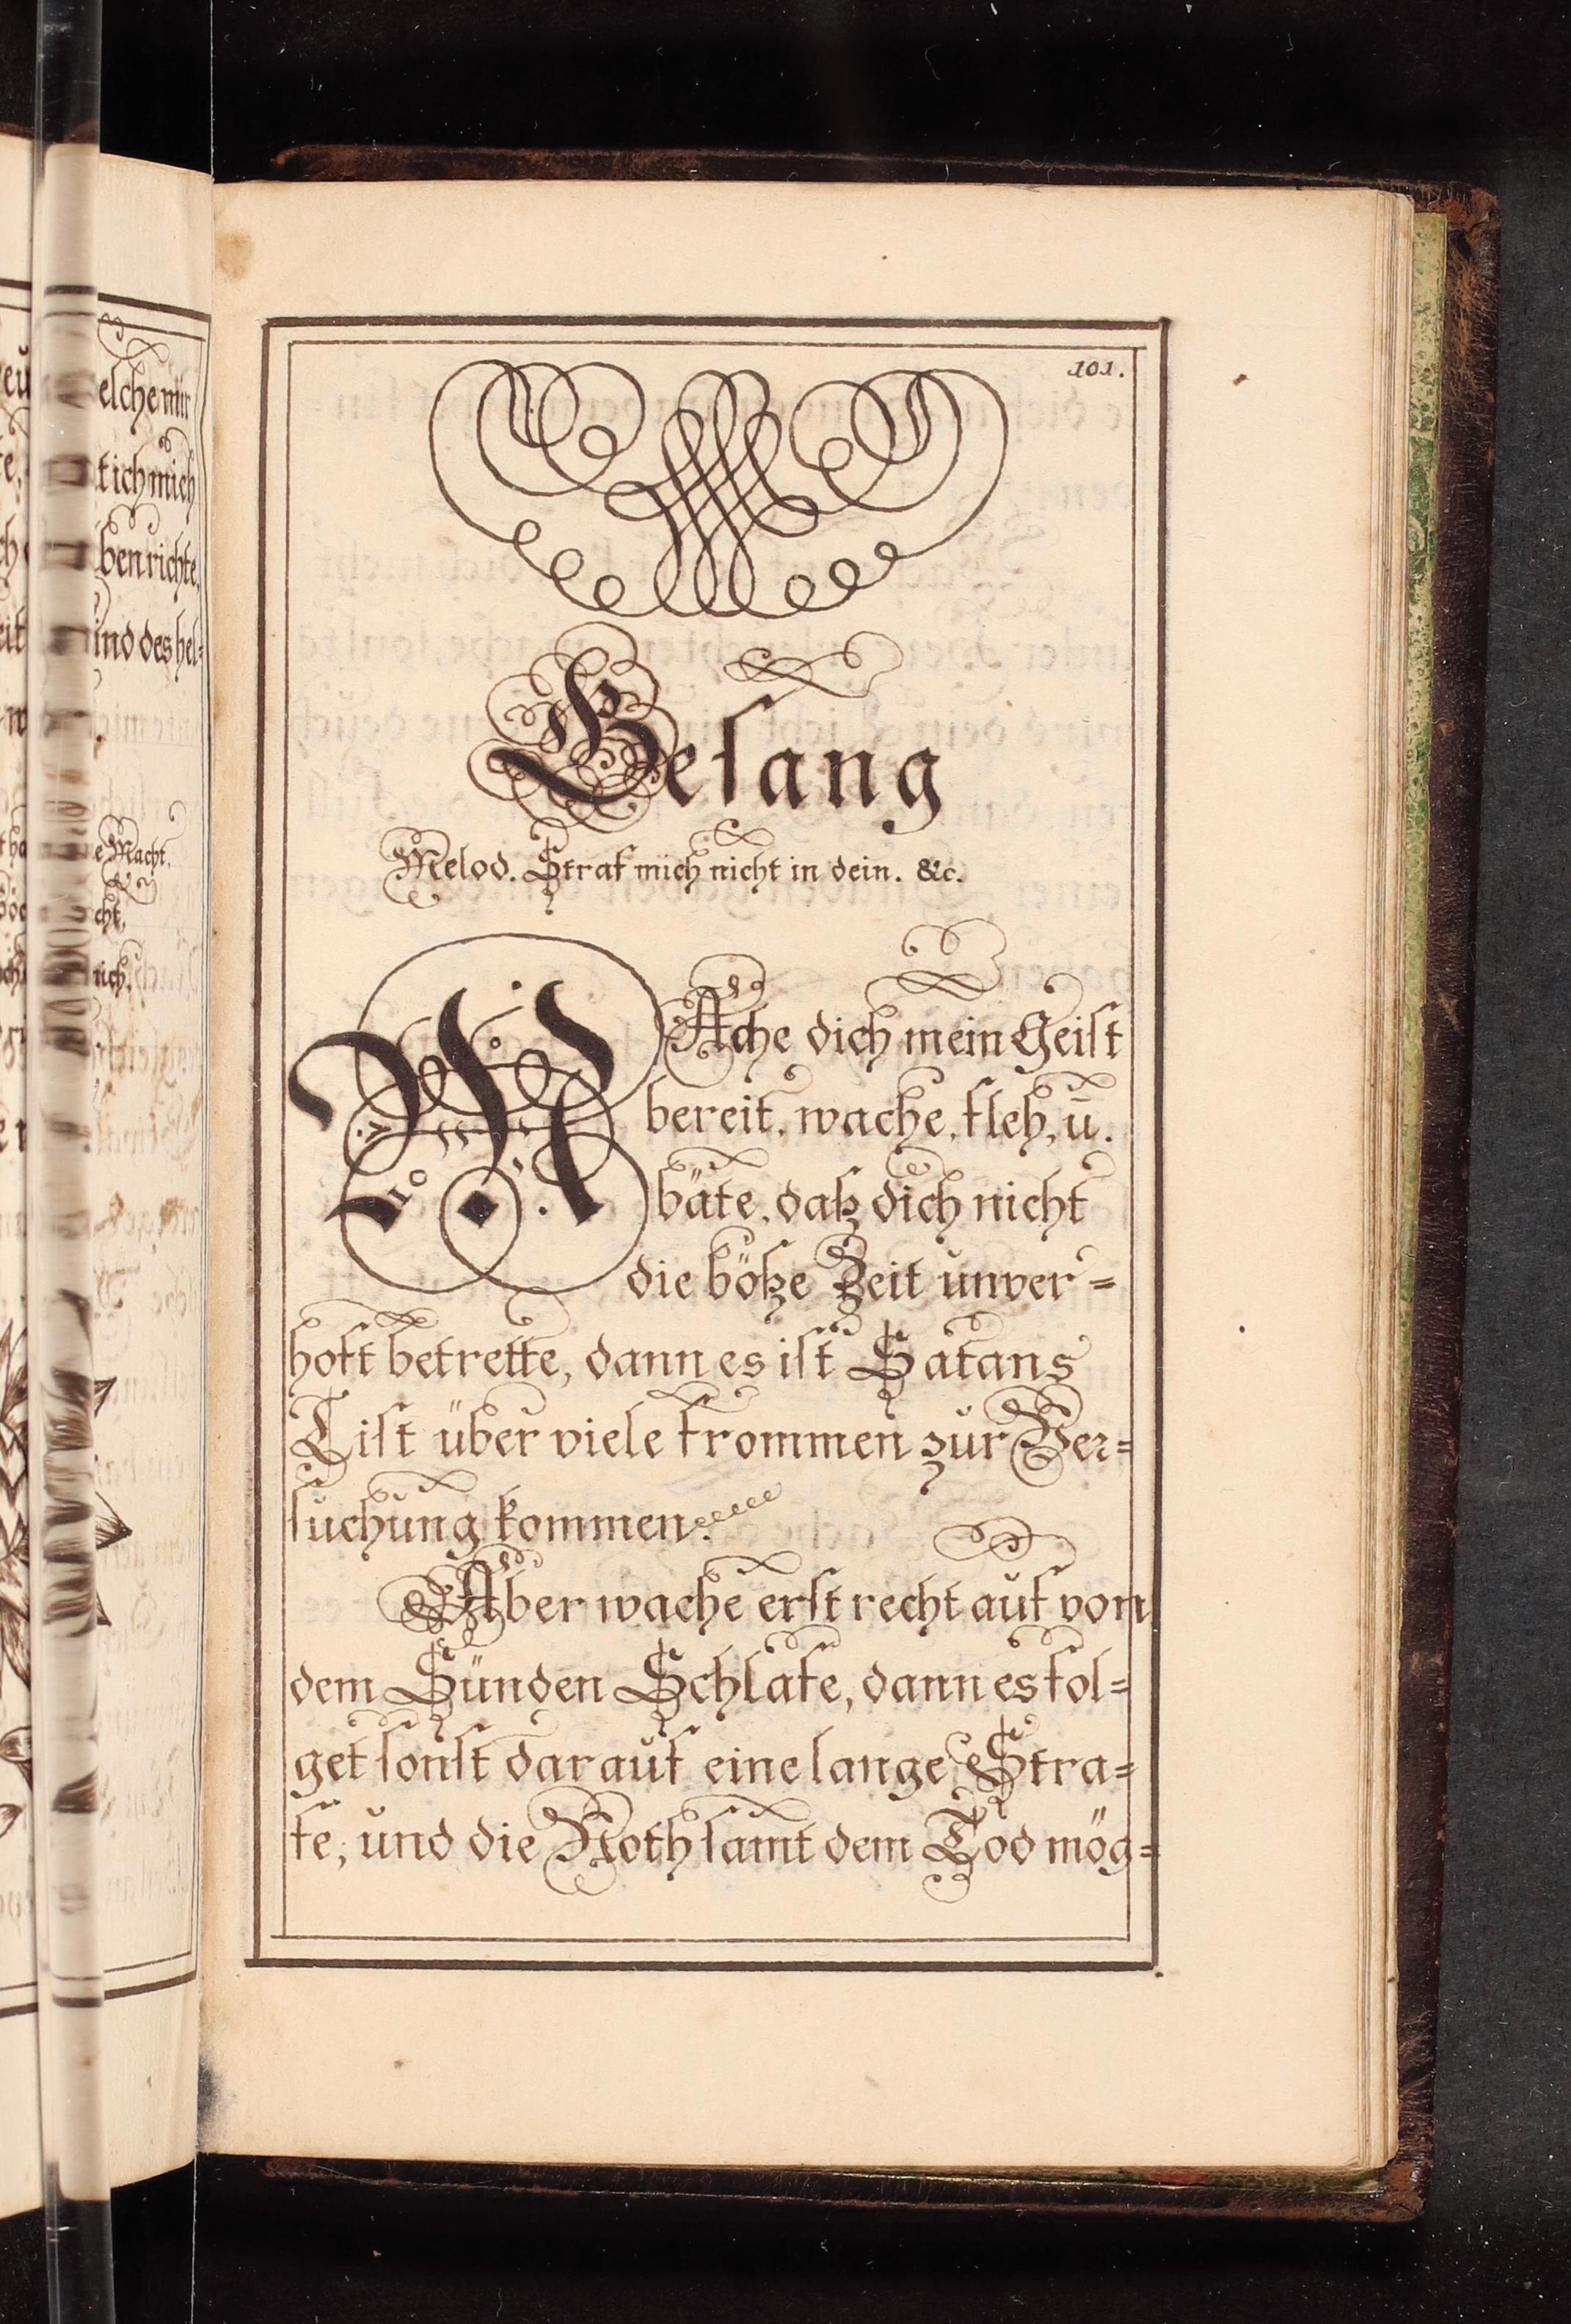 101.
Gesang
Melod. Straf mich nicht in dein. &c.
WAche dich mein Geist
bereit, wache, fleh, ū.
bäte, daß dich nicht
die böße Zeit unver=
hoft betrette, dann es ist Satans
List über viele frommen zur Ver=
suchung kommen.
Aber wache erst recht auf von
dem Sünden Schlafe, dann es fol=
get sonst darauf eine lange Stra=
fe, und die Noth samt dem Tod mög=
elche mir
t ich mich
ben richte,
ind des hel=
e Macht,
cht,